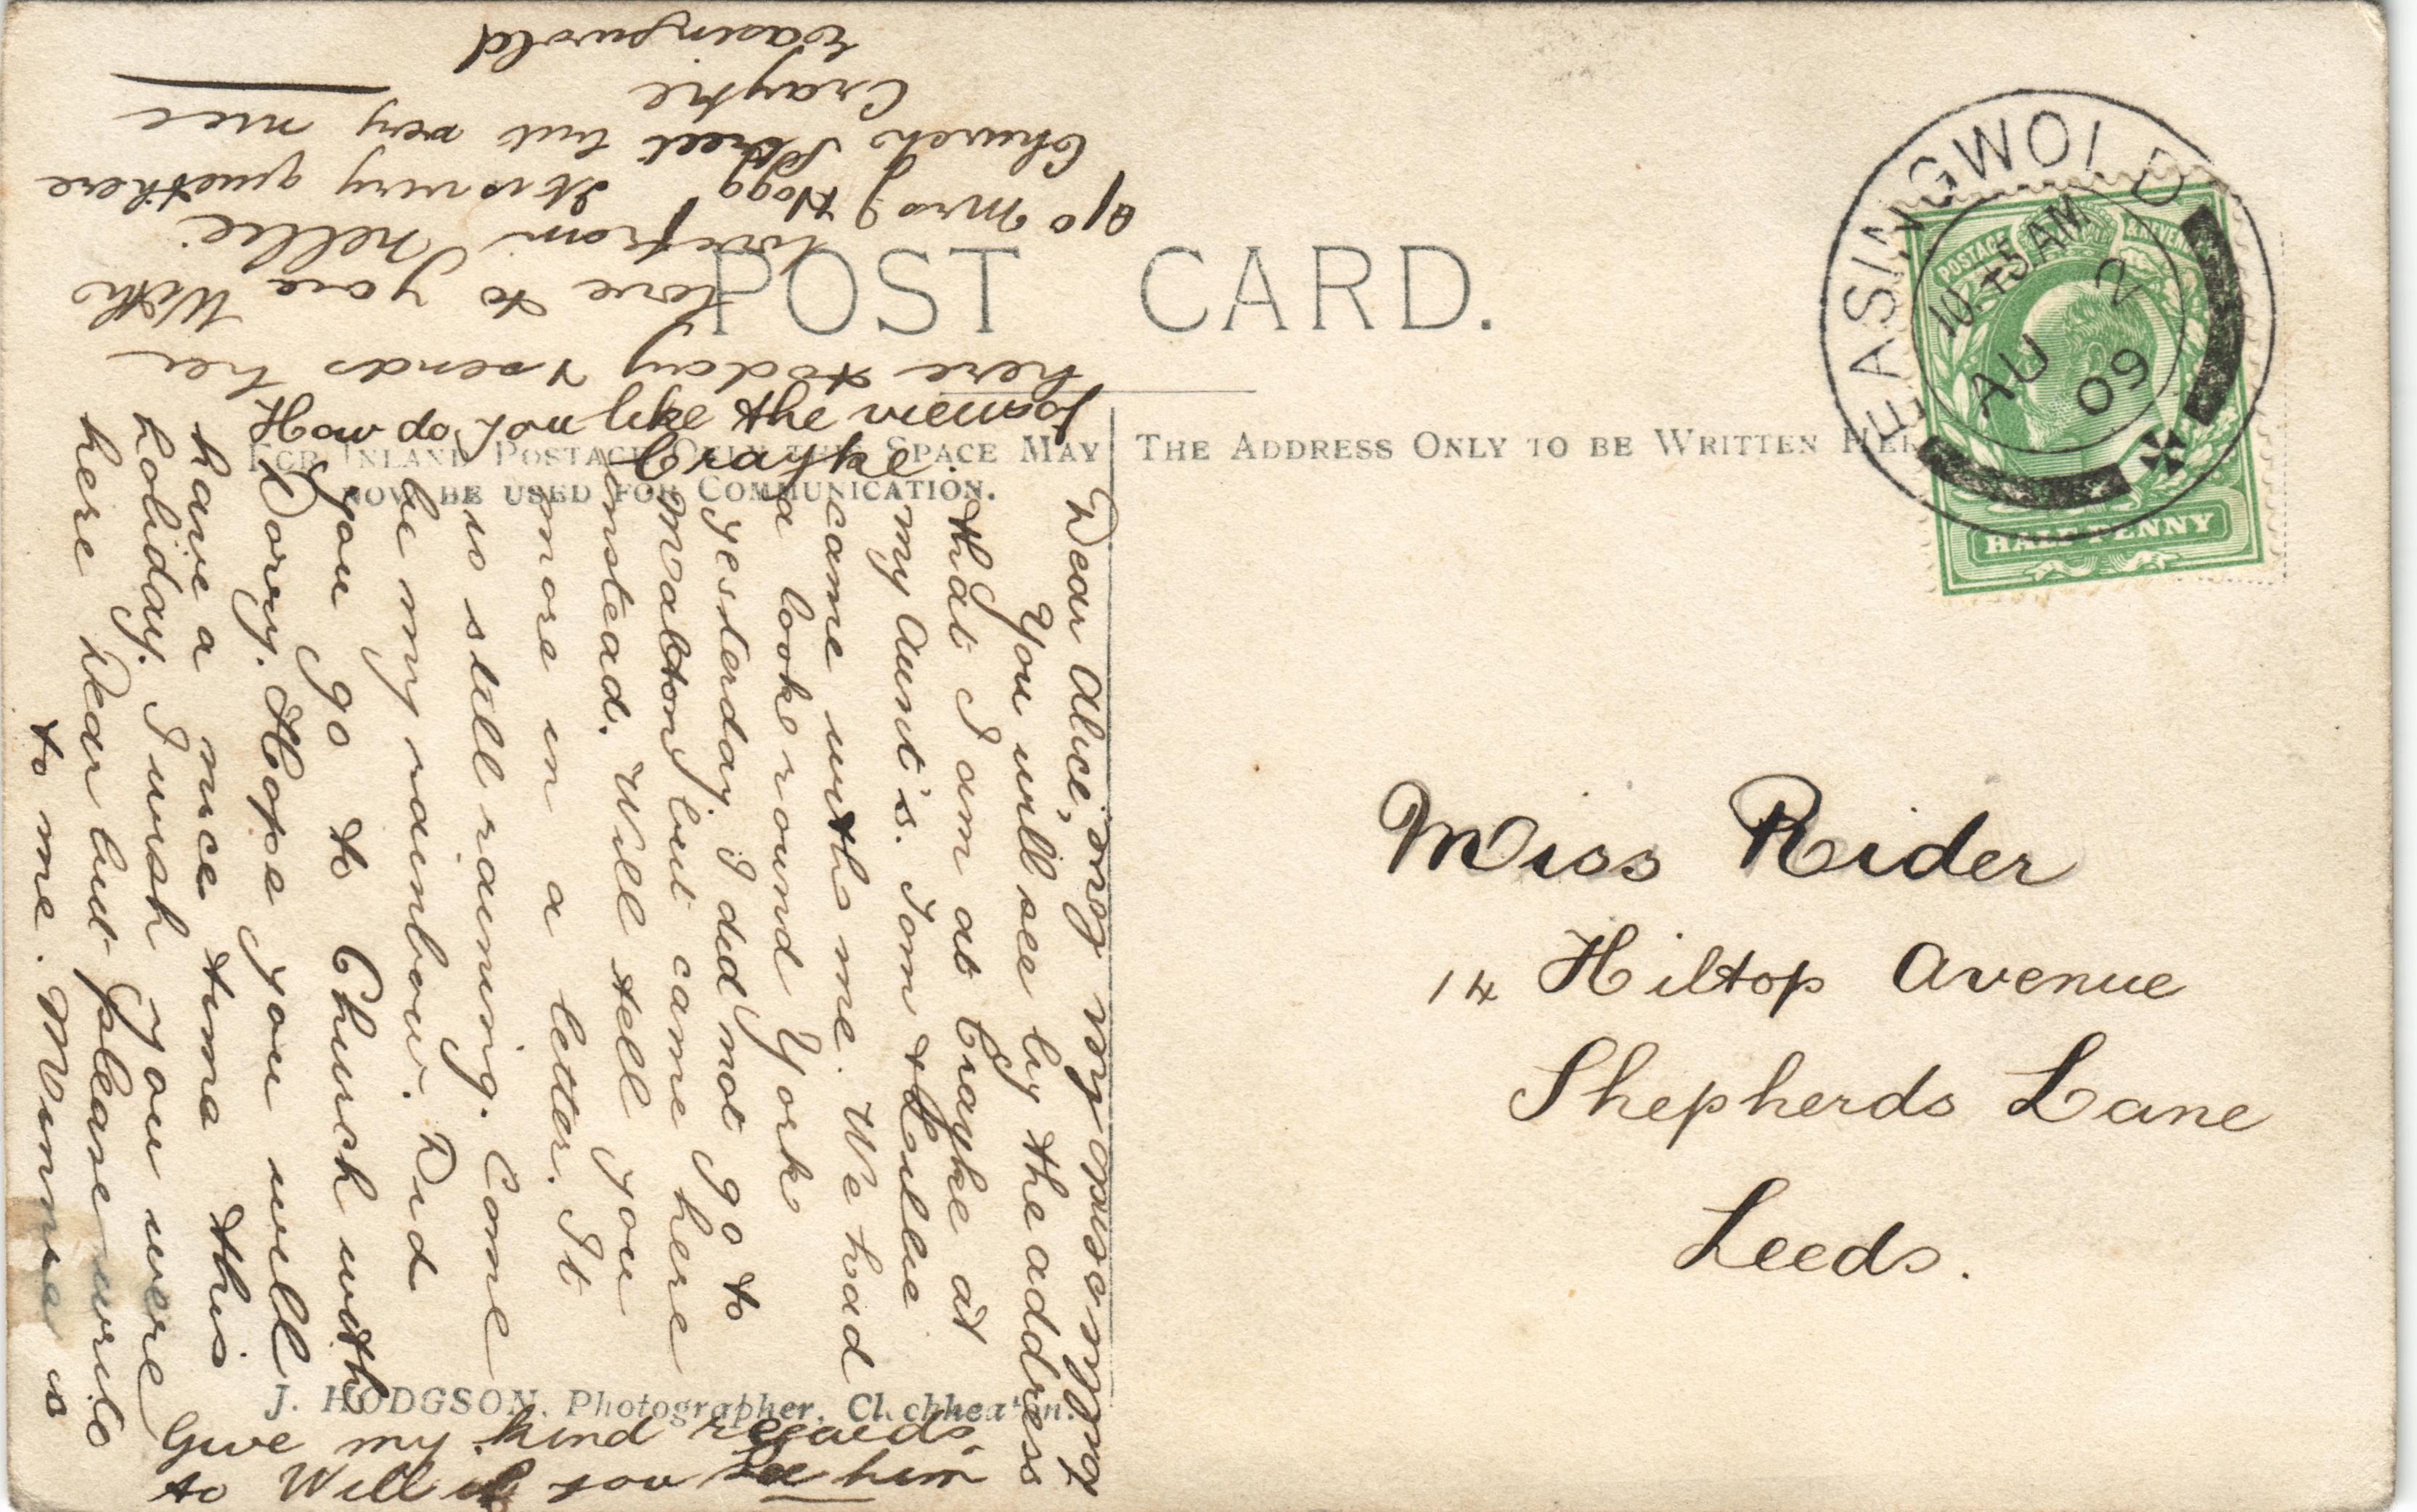 POST CARD.
FOR INLAND POSTAGE ONLY THIS SPACE MAY
NOW BE USED FOR COMMUNICATION.
THE ADDRESS ONLY TO BE WRITTEN HERE
EASINGWOLD
10.45 AM
AU 2
09
POSTAGE & REVENUE
HALFPENNY
Miss Rider
14 Hilltop Avenue
Shepherds Lane
Leeds.
Dear Alice,
You will see by the address
that I am at Crayke at
my Aunt's. Tom & Lillie
came with me. We had
a look round York
yesterday, I did not go to
Malton but came here
instead. Will tell you
more in a letter. It
is still raining. Come
be my rainbow. Did
you go to Church with
Dorry. Hope you will
have a nice time this
holiday. I wish you were
here Dear but please write
to me. Minnie is
here today & sends her
love to you With
love from Nellie.
c/o Mrs J Hogg
Church Street
Crayke
Easingwold
It is very quiet here
but very nice
How do you like the
Crayke
Give my kind regards
to Will if you see him
J. HODGSON, Photographer, Cleckheaton.